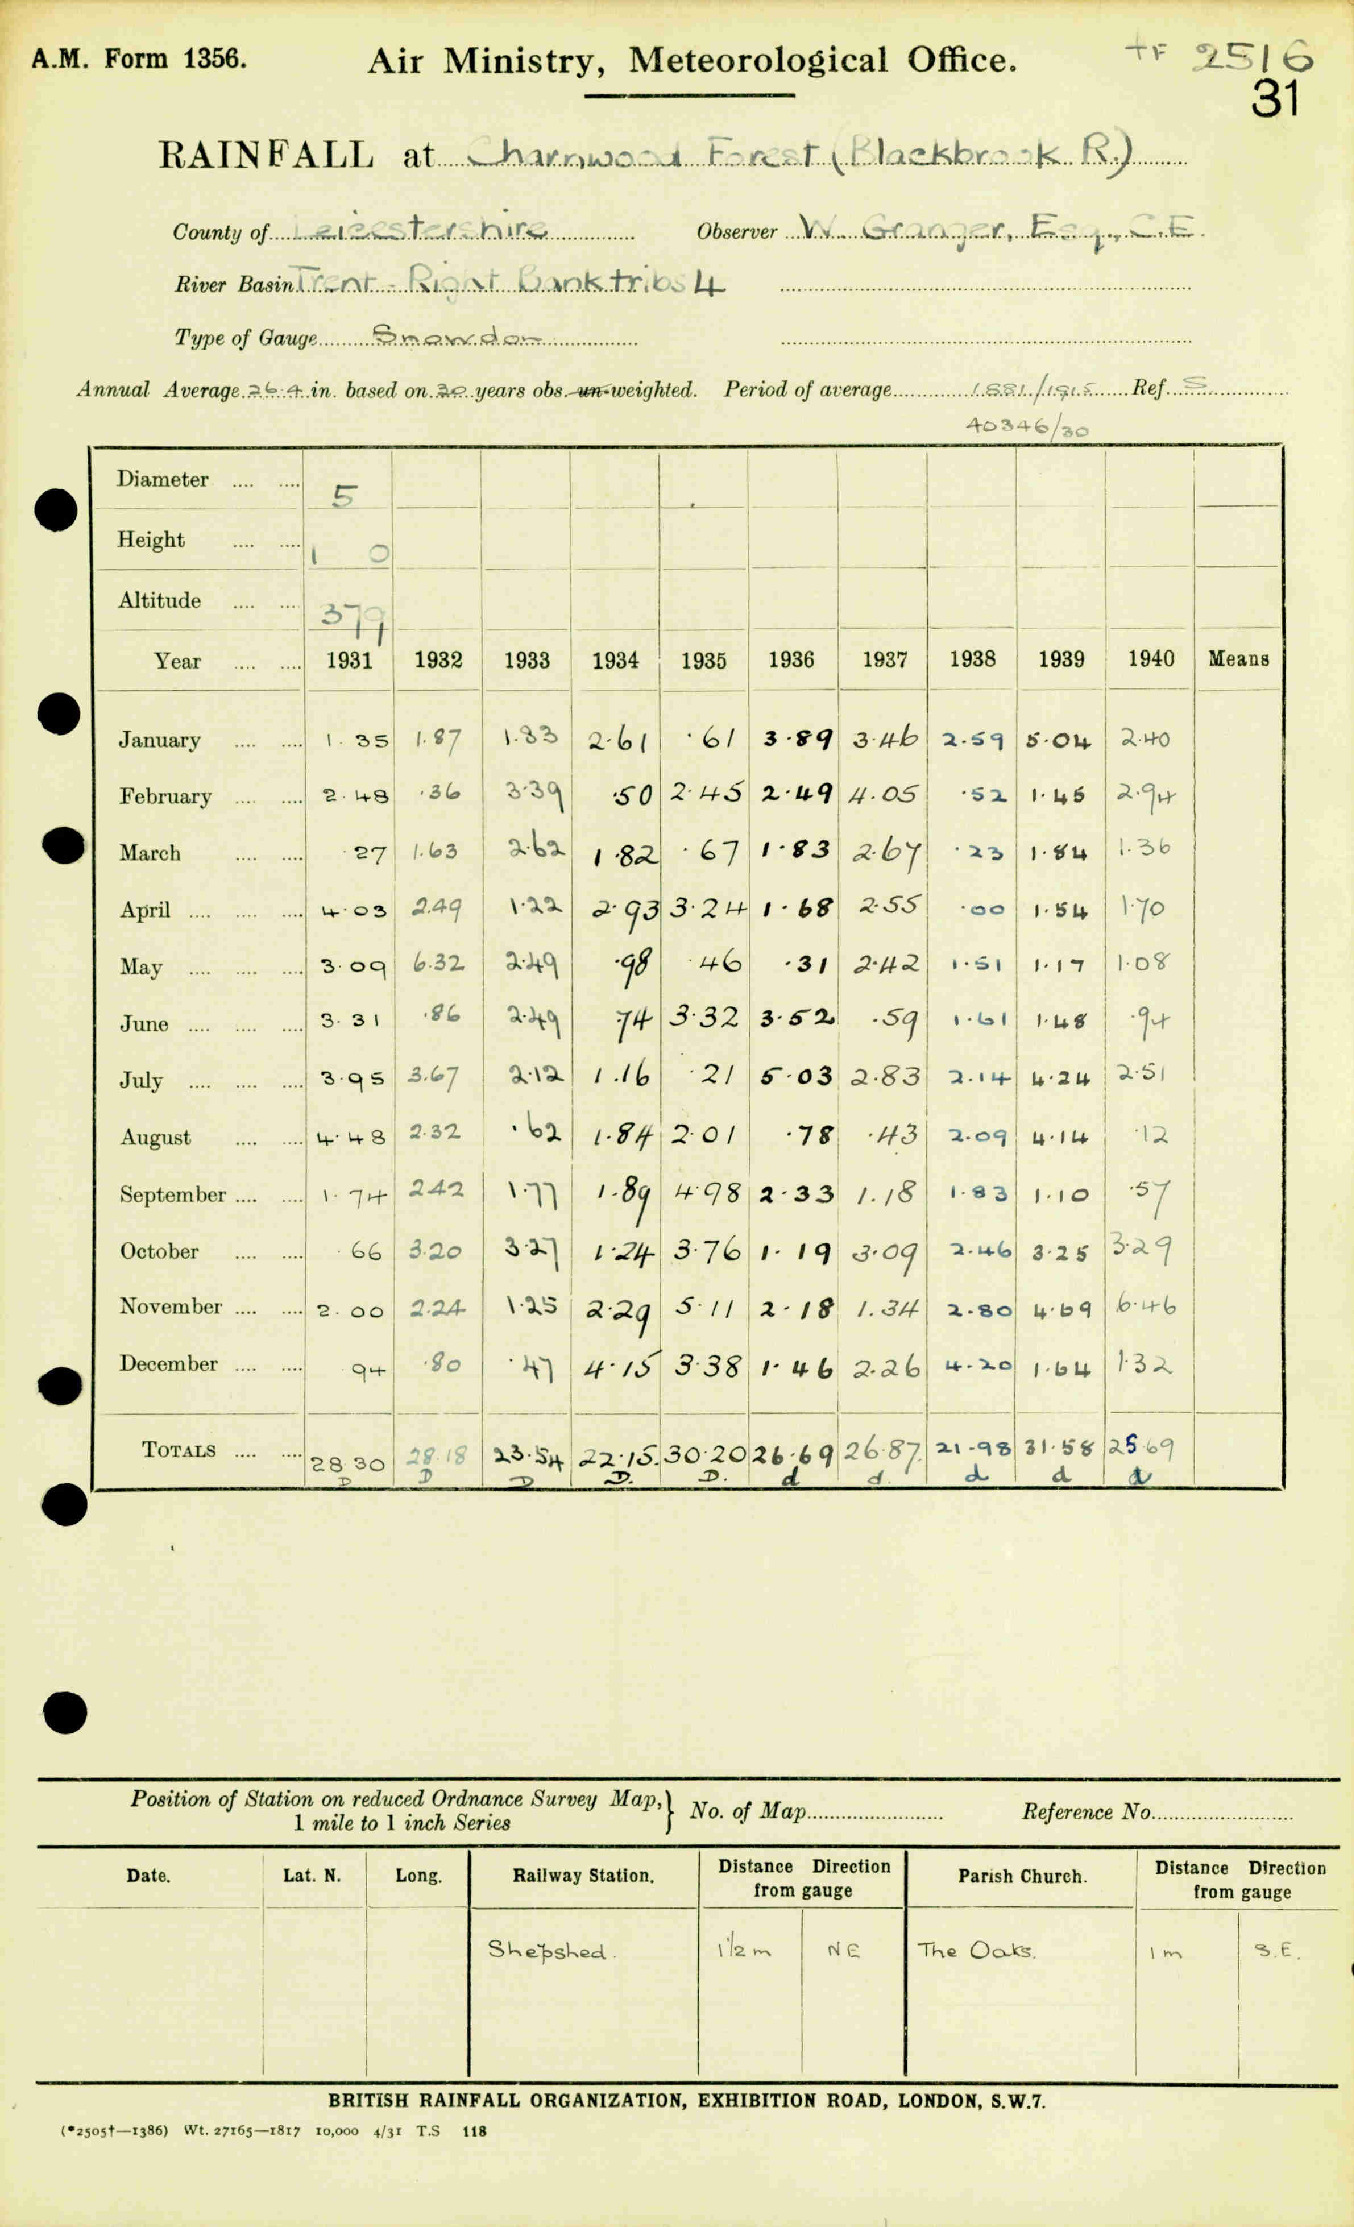 A.M. Form 1356. Air Ministry, Meteorological Office. TF 2516
31
RAINFALL at Charnwood Forest (Blackbrook R.)
County of Leicestershire Observer W. Granger, Esq., C.E.
River Basin Trent - Right Bank tribs 4
Type of Gauge Snowdon
Annual Average 26.4 in. based on 30 years obs. un-weighted. Period of average 1881/1915 Ref. S
40346/30
Diameter .... .... 5
Height .... .... 1 0
Altitude .... .... 379
Year .... .... 1931 1932 1933 1934 1935 1936 1937 1938 1939 1940 Means
January .... .... 1.35 1.87 1.83 2.61 .61 3.89 3.46 2.59 5.04 2.40
February .... .... 2.48 .36 3.39 .50 2.45 2.49 4.05 .52 1.45 2.94
March .... .... 27 1.63 2.62 1.82 .67 1.83 2.67 .23 1.84 1.36
April .... .... .... 4.03 2.49 1.22 2.93 3.24 1.68 2.55 .00 1.54 1.70
May .... .... .... 3.09 6.32 2.49 .98 .46 .31 2.42 1.51 1.17 1.08
June .... .... .... 3.31 .86 2.49 74 3.32 3.52 .59 1.61 1.48 .94
July .... .... .... 3.95 3.67 2.12 1.16 .21 5.03 2.83 2.14 4.24 2.51
August .... .... 4.48 2.32 .62 1.84 2.01 .78 .43 2.09 4.14 .12
September .... .... 1.74 2.42 1.77 1.89 4.98 2.33 1.18 1.83 1.10 .57
October .... .... .66 3.20 3.27 1.24 3.76 1.19 3.09 2.46 3.25 3.29
November .... .... 2.00 2.24 1.25 2.29 5.11 2.18 1.34 2.80 4.69 6.46
December .... .... 94 .80 .47 4.15 3.38 1.46 2.26 4.20 1.64 1.32
TOTALS .... .... 28 30 28.18 23.54 22.15. 30.20 26.69 26.87. 21.98 31.58 25.69
D D D D. D. d d. d d d
Position of Station on reduced Ordnance Survey Map, } No. of Map Reference No.
1 mile to 1 inch Series
Date. Lat. N. Long. Railway Station. Distance Direction from gauge Parish Church. Distance Direction from gauge
Shepshed. 1½ m NE The Oaks. 1 m S.E.
BRITISH RAINFALL ORGANIZATION, EXHIBITION ROAD, LONDON, S.W.7.
(*2505†—1386) Wt. 27165—1817 10,000 4/31 T.S 118